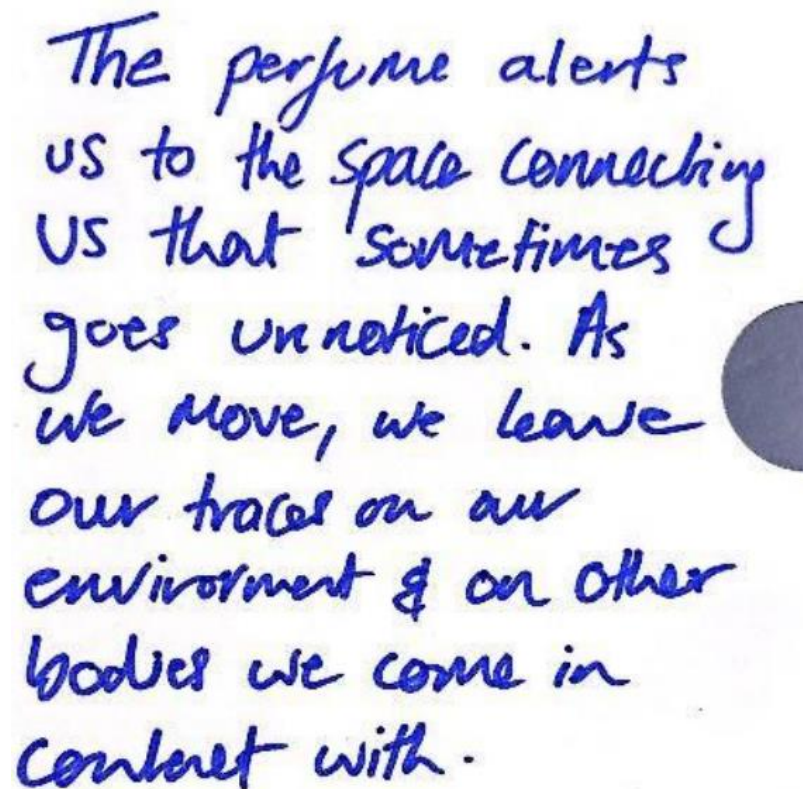 The perfume alerts
us to the space connecting
us that sometimes
goes unnoticed. As
we move, we leave
our traces on our
environment & on other
bodies we come in
contact with.